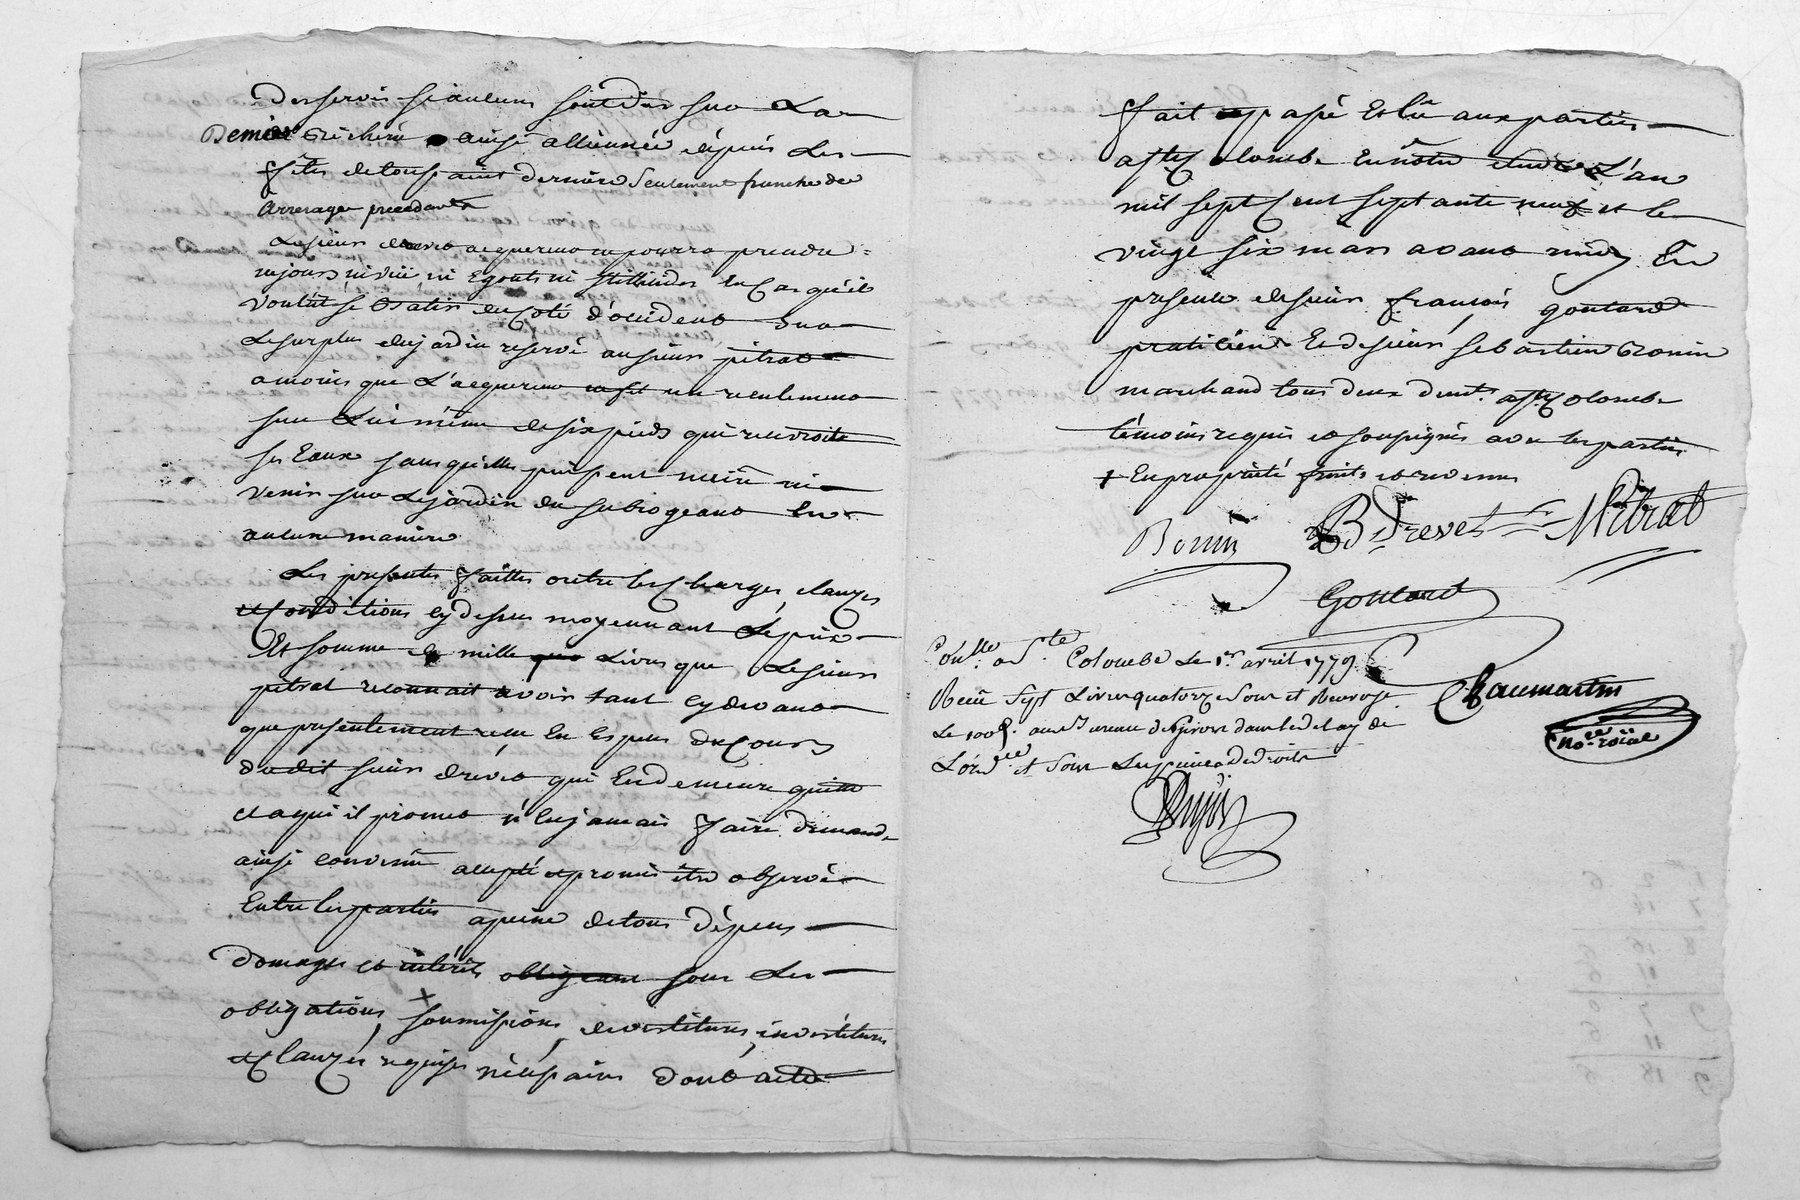 Des servis si aucuns sont dûs sur La
Demie Bicherée ainsi allienneé depuis Les
fêtes de toussaint derniere Seulement franche des
Arrerages precedants
Le sieur drevet acquereur ne pourra prendre
ny jours ni vüe ni Egouts ni Stillicides En Cas qu'il
voulût se batir du Coté d'occident sur
Le surplus du jardin reservé au sieur pitrat
a moins que L'acquereur ne fit un reculement
sur Lui même de six pieds qui recevroit
ses Eaux sans qu'elles puissent nuire ni
venir sur Le jardin du subrogeant En
aucune maniere
Les presentes faittes outre les Charges, clauzes
et Conditions cy dessus moyennant Le prix
Et somme de mille Livres que Le sieur
pitrat reconnait avoir tant cy devant
que presentement reçu En Especes de Cours
dudit sieur drevet qui En demeure quitte
et a qui il promet n'En jamais faire demande
ainsi convenu accepté et promis être observé
Entre les parties a peine de tous dépens
Domages et intérêts sous Les
obligations, + soumissions, devestitures, investitures
et Clauzes requises nécéssaires Dont acte
fait et passé Et Lû aux parties
a Ste Colombe En nôtre etude L'an
mil sept Cent septante neuf et le
vingt six mars avant midy En
presence de sieur françois goutard
praticien Et de sieur sebastien Bonin
marchand tous deux demt. a Ste Colombe
témoins requis et soussignés avec les parties
+ En proprieté fruits et revenus
Bonin B Drevet Pitrat
Goutard
Conlle. a Ste Colombe Le 1er avril 1779
Reçu Sept Livres quatorze Sous et Renvoyé
Le 100e. au Bureau de Givors dans Le delay de
L'ordce et Sous Les peines de droit
Chaumartin
no.re roïal
Dujoi